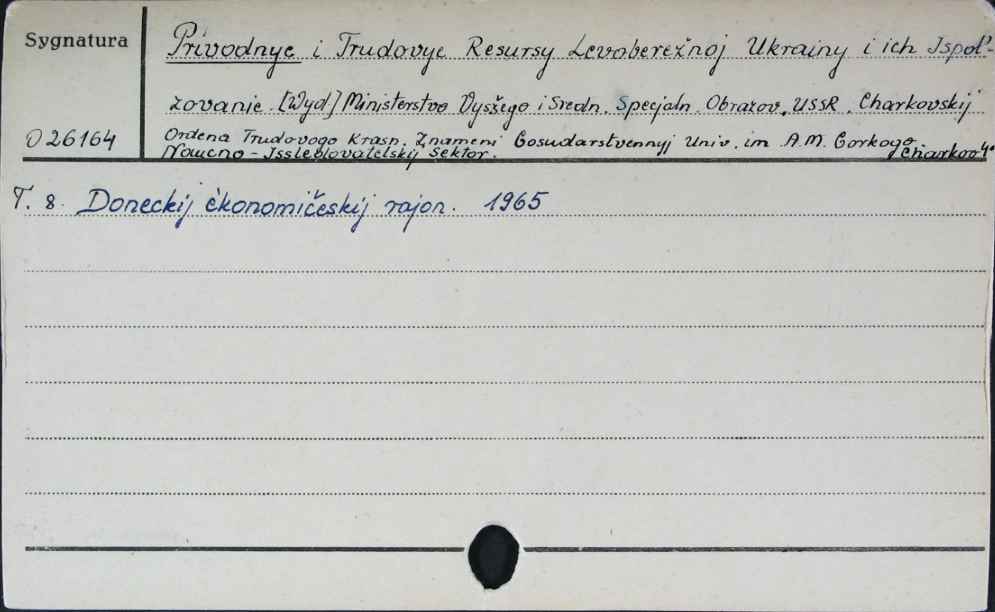 Sygnatura
Privodnye i Trudovye Resursy Levoberežnoj Ukrainy i ich Ispol'-
zovanie. [Wyd] Ministerstvo Vysšego i Sredn. Specjaln. Obrazov. USSR. Charkovskij
O 26164
Ordena Trudovogo Krasn. Znameni Gosudarstvennyj Univ. im A.M. Gorkogo.
Naucno-Issledovatelskij Sektor. Charkov 4°
T. 8. Doneckij èkonomičeskij rajon. 1965